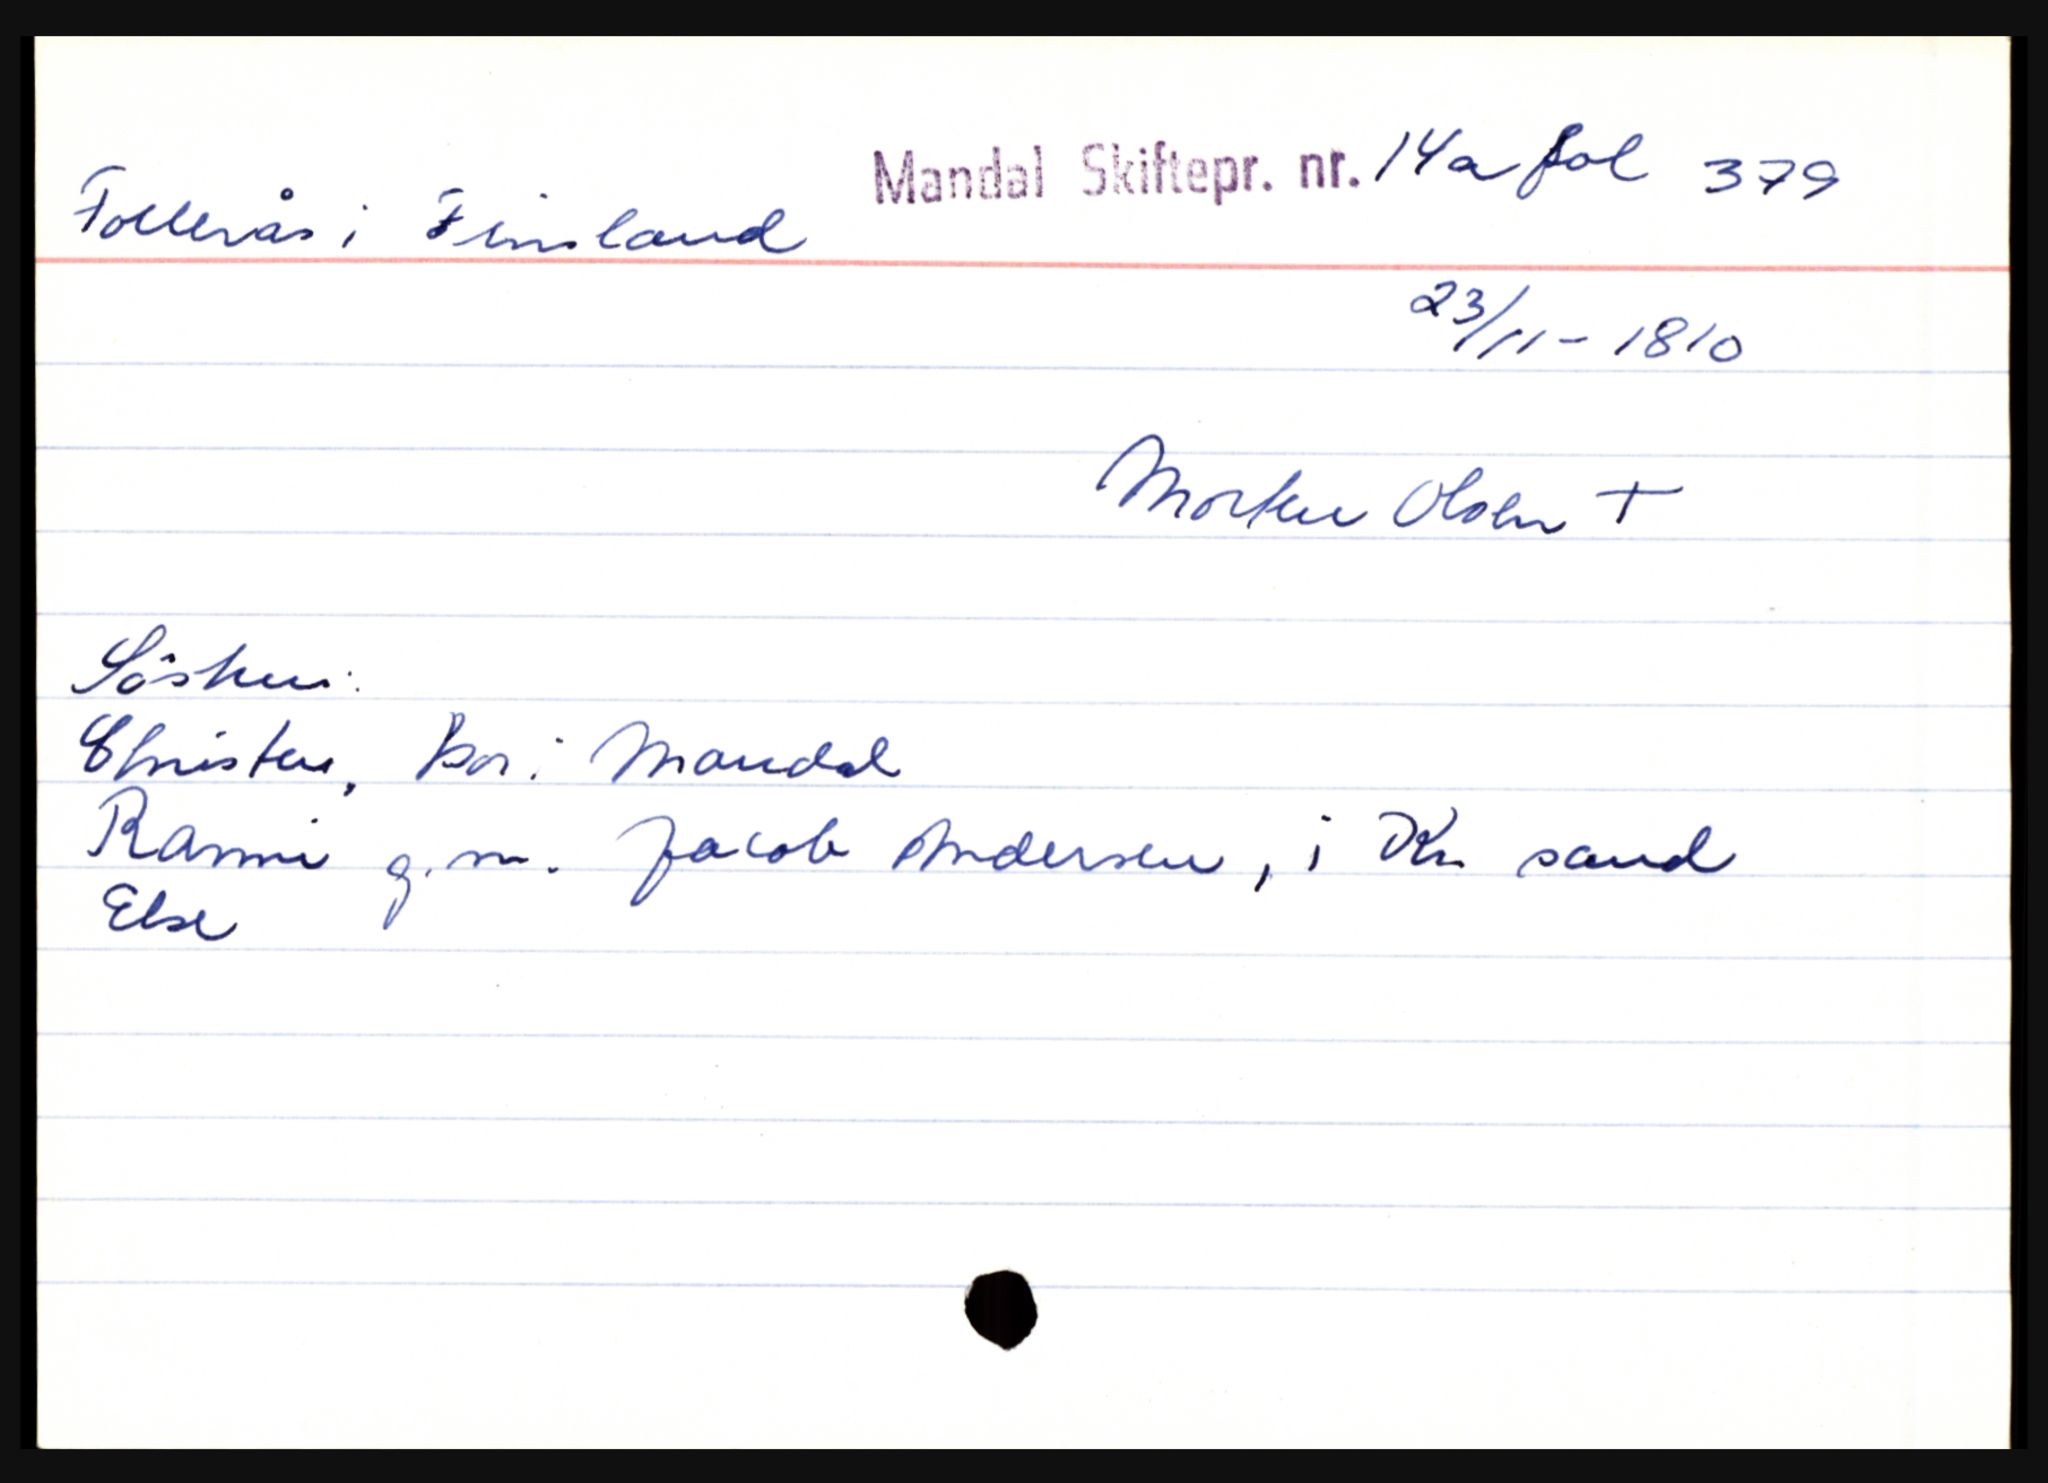 Mandal Skiftepr. nr. 14a fol 379
Follerås i Finsland
23/11 - 1810
Morten Olsen +
Søsken:
Christen, bor i Mandal
Ranni g. m. Jacob Andersen, i Kr. sand
Else